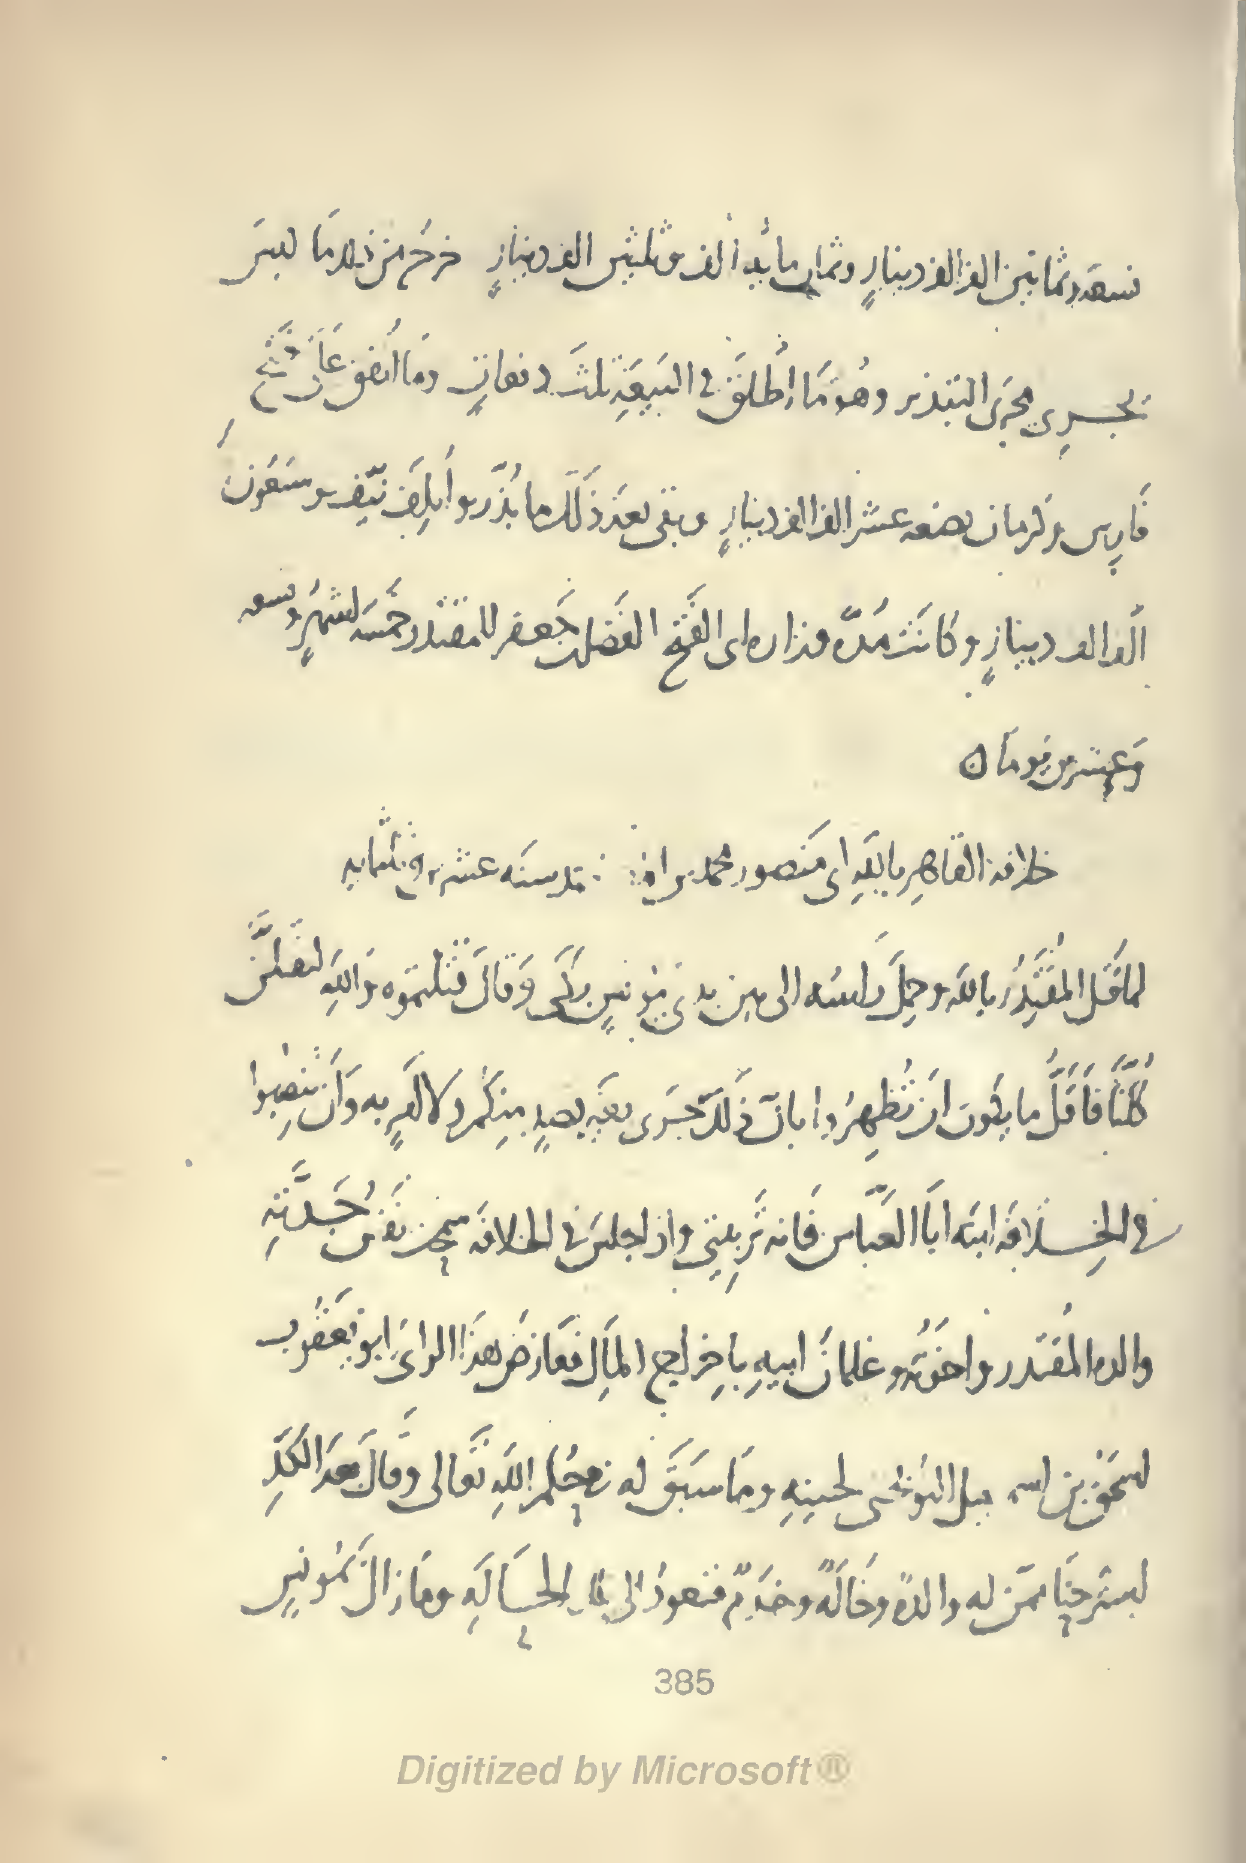 تسعة وثمانين الف الف دينارٍ وثمان مائة ألف وثلثين الف دينارٍ خرج من ذلك ما ليسَ
يجرى مجرَى التبذير وهو مَا أُطلقَ في البَيعَةِ ثلثَ دفعاتٍ ومَا أُنفق عَلى فتح
فَارِس وكرمان بضعه عشر الف الف دينارٍ وبقى بعدَ ذَلك ما بُذّر وأُتلِفَ نَيّف وسَبعُون
الف الف دينارٍ وكانَت مُدّه وزاره ابى الفَتح الفَضل بن جَعفر للمقتدر خمسَه اشهُرٍ وتسعه
وَعِشرين يومًا ه
خلافة القاهِر باللهِ ابى مَنصور محمد بن سنَه عشرين وثلثمايه
لما قُتل المُقتَدِرُ بالله وحمِلَ رَاسُه الى بين يدى مُونسٍ بكَى وَقالَ قَتلتمَوه وَاللهِ لنقتلَنَّ
كُلنَّا فَاقَلُّ ما يكَون ان تُظهِرُوا بانّ ذلكَ جَرَى بغَيرِ قصدٍ مِنكُم ولا امرٍ به وَأن تنصِبُوا
في الخِلافَه ابنَه ابَا العَبَّاس فَانه تَربيَتى واذا جلسَ في الخلافَه سمحت نَفسُ جَدَّتهِ
والده المُقتدر واخوَتُه وغلمانَ ابيهِ باخراجِ المَال فعَارَضَ هذَا الراىَ ابو يَعقُوب
اسحق بن اسمعيل النوبختى لحينِهِ ومَا سَبَقَ له في حُكم اللهِ تَعَالى وقَالَ بعدَ الكَدِّ
استرحنَا ممّن له والدةٌ وخَالةٌ وخدَمٌ فنعودُ الى تلك الحَالَهِ ومَا زالَ بمُونسٍ
385
Digitized by Microsoft®